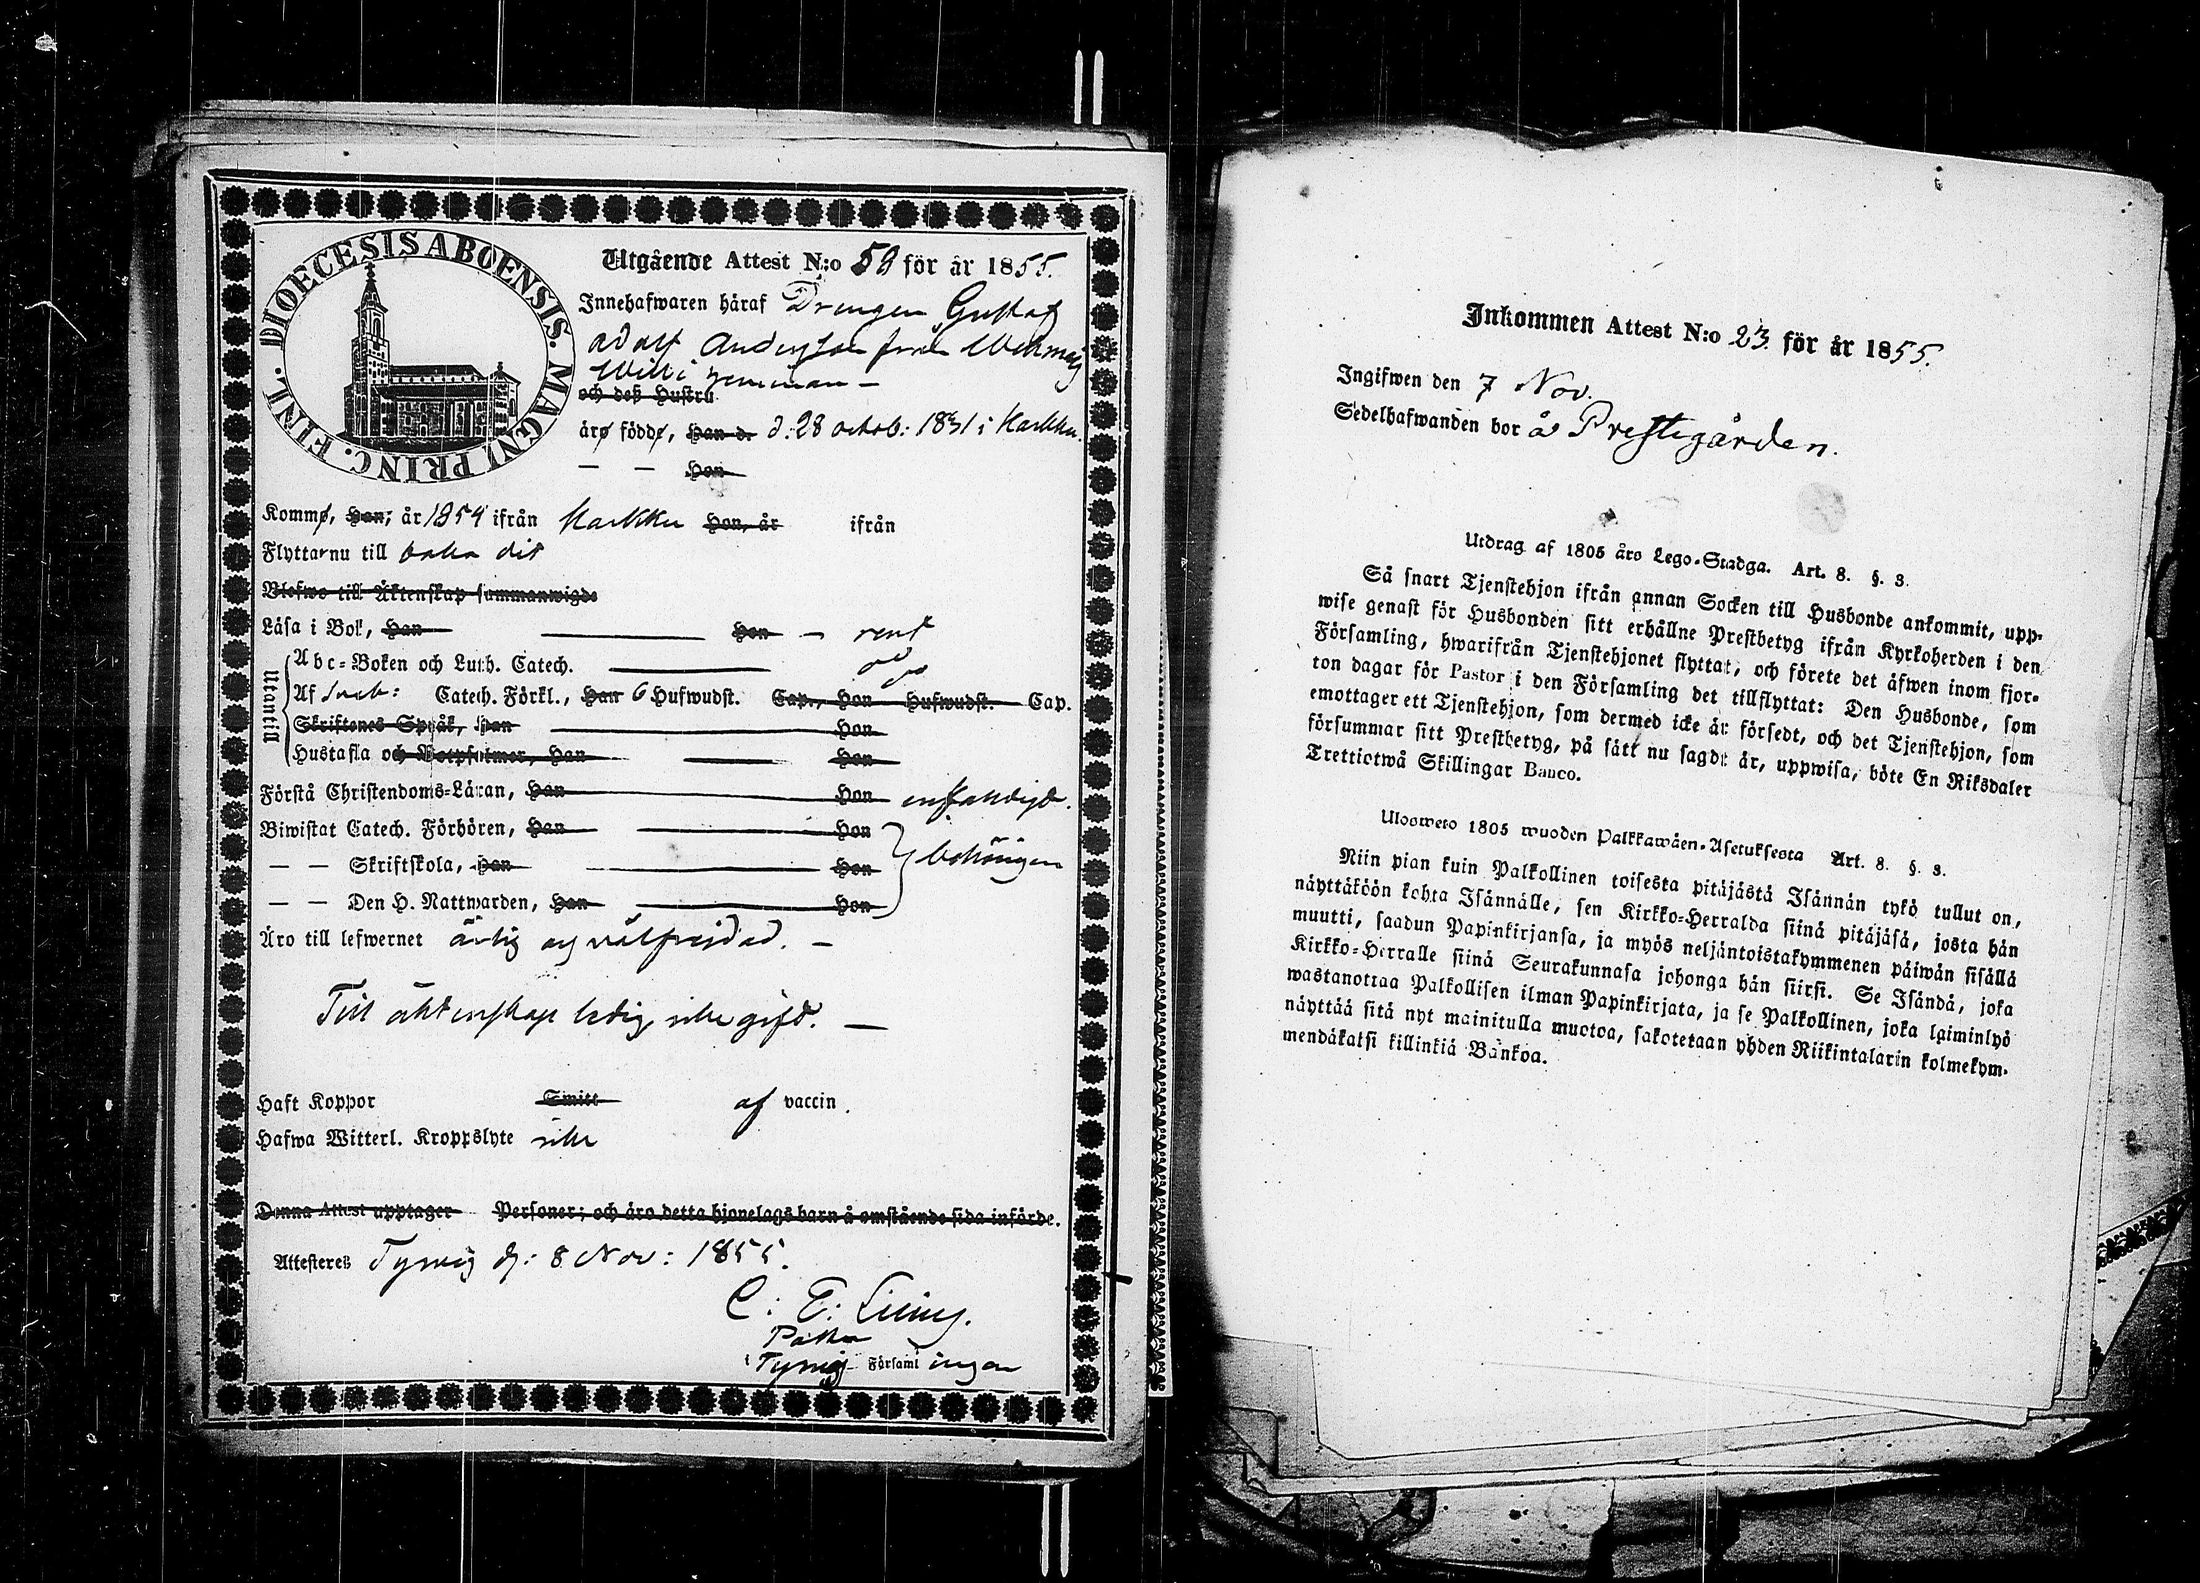 DIOECESIS ABOENSIS. MAGNI PRINC. FINL.
Utgående Attest N:o 59 för år 1855.
Innehafwaren häraf Drengen Gustaf
Adolf Andersson från
och deß Hustru
äro födde, Han d. d. 28 octob: 1831 i Karkku.
— — Hon
Komme, Han, år 1854 ifrån Karkku Hon, år ifrån
Flyttar nu till baka dit
Blefwo till Äktenskap sammanwigde
Läsa i Bok, Han Hon — rent
Utantill
Abc-Boken och Luth. Catech.
Af Sveb: Catech. Förkl., Han 6 Hufwudst. Cap., Hon Hufwudst. Cap.
Skriftenes Språk, Han Hon
Hustafla och Botpsalmer, Han Hon
Förstå Christendoms-Läran, Han Hon enfaldigt.
Biwistat Catech. Förhören, Han Hon
— — Skriftskola, Han Hon behörigen
— — Den H. Nattwarden, Han Hon
Äro till lefwernet ärlig och välfrejdad. —
Till äktenskap ledig, icke gift. —
Haft Koppor Smitt af vaccin.
Hafwa Witterl. Kroppslyte icke
Denna Attest upptager Personer; och äro detta hjonelags barn å omstående sida införde.
Attesteres Tyrvis d: 8 Nov: 1855.
C: E:
Församlingen
Inkommen Attest N:o 23 för år 1855.
Ingifwen den 7 Nov.
Sedelhafwanden bor å Prestegården.
Utdrag af 1805 års Lego-Stadga. Art. 8. §. 3.
Så snart Tjenstehjon ifrån annan Socken till Husbonde ankommit, upp-
wise genast för Husbonden sitt erhållne Prestbetyg ifrån Kyrkoherden i den
Församling, hwarifrån Tjenstehjonet flyttat, och förete det äfwen inom fjor-
ton dagar för Pastor i den Församling det tillflyttat: Den Husbonde, som
emottager ett Tjenstehjon, som dermed icke är försedt, och det Tjenstehjon, som
försummar sitt Prestbetyg, på sätt nu sagdt är, uppwisa, böte En Riksdaler
Trettiotwå Skillingar Banco.
Ulosweto 1805 wuoden Palkkawäen-Asetuksesta Art. 8. §. 3.
Niin pian kuin Palkollinen toisesta pitäjästä Isännän tykö tullut on,
näyttäköön kohta Isännälle, sen Kirkko-Herralda siinä pitäjäsä, josta hän
muutti, saadun Papinkirjansa, ja myös neljäntoistakymmenen päiwän sisällä
Kirkko-Herralle siinä Seurakunnasa johonga hän siirsi. Se Isändä, joka
wastanottaa Palkollisen ilman Papinkirjata, ja se Palkollinen, joka laiminlyö
näyttää sitä nyt mainitulla muotoa, sakotetaan yhden Riikintalarin kolmekym-
mendäkaksi killinkiä Bankoa.